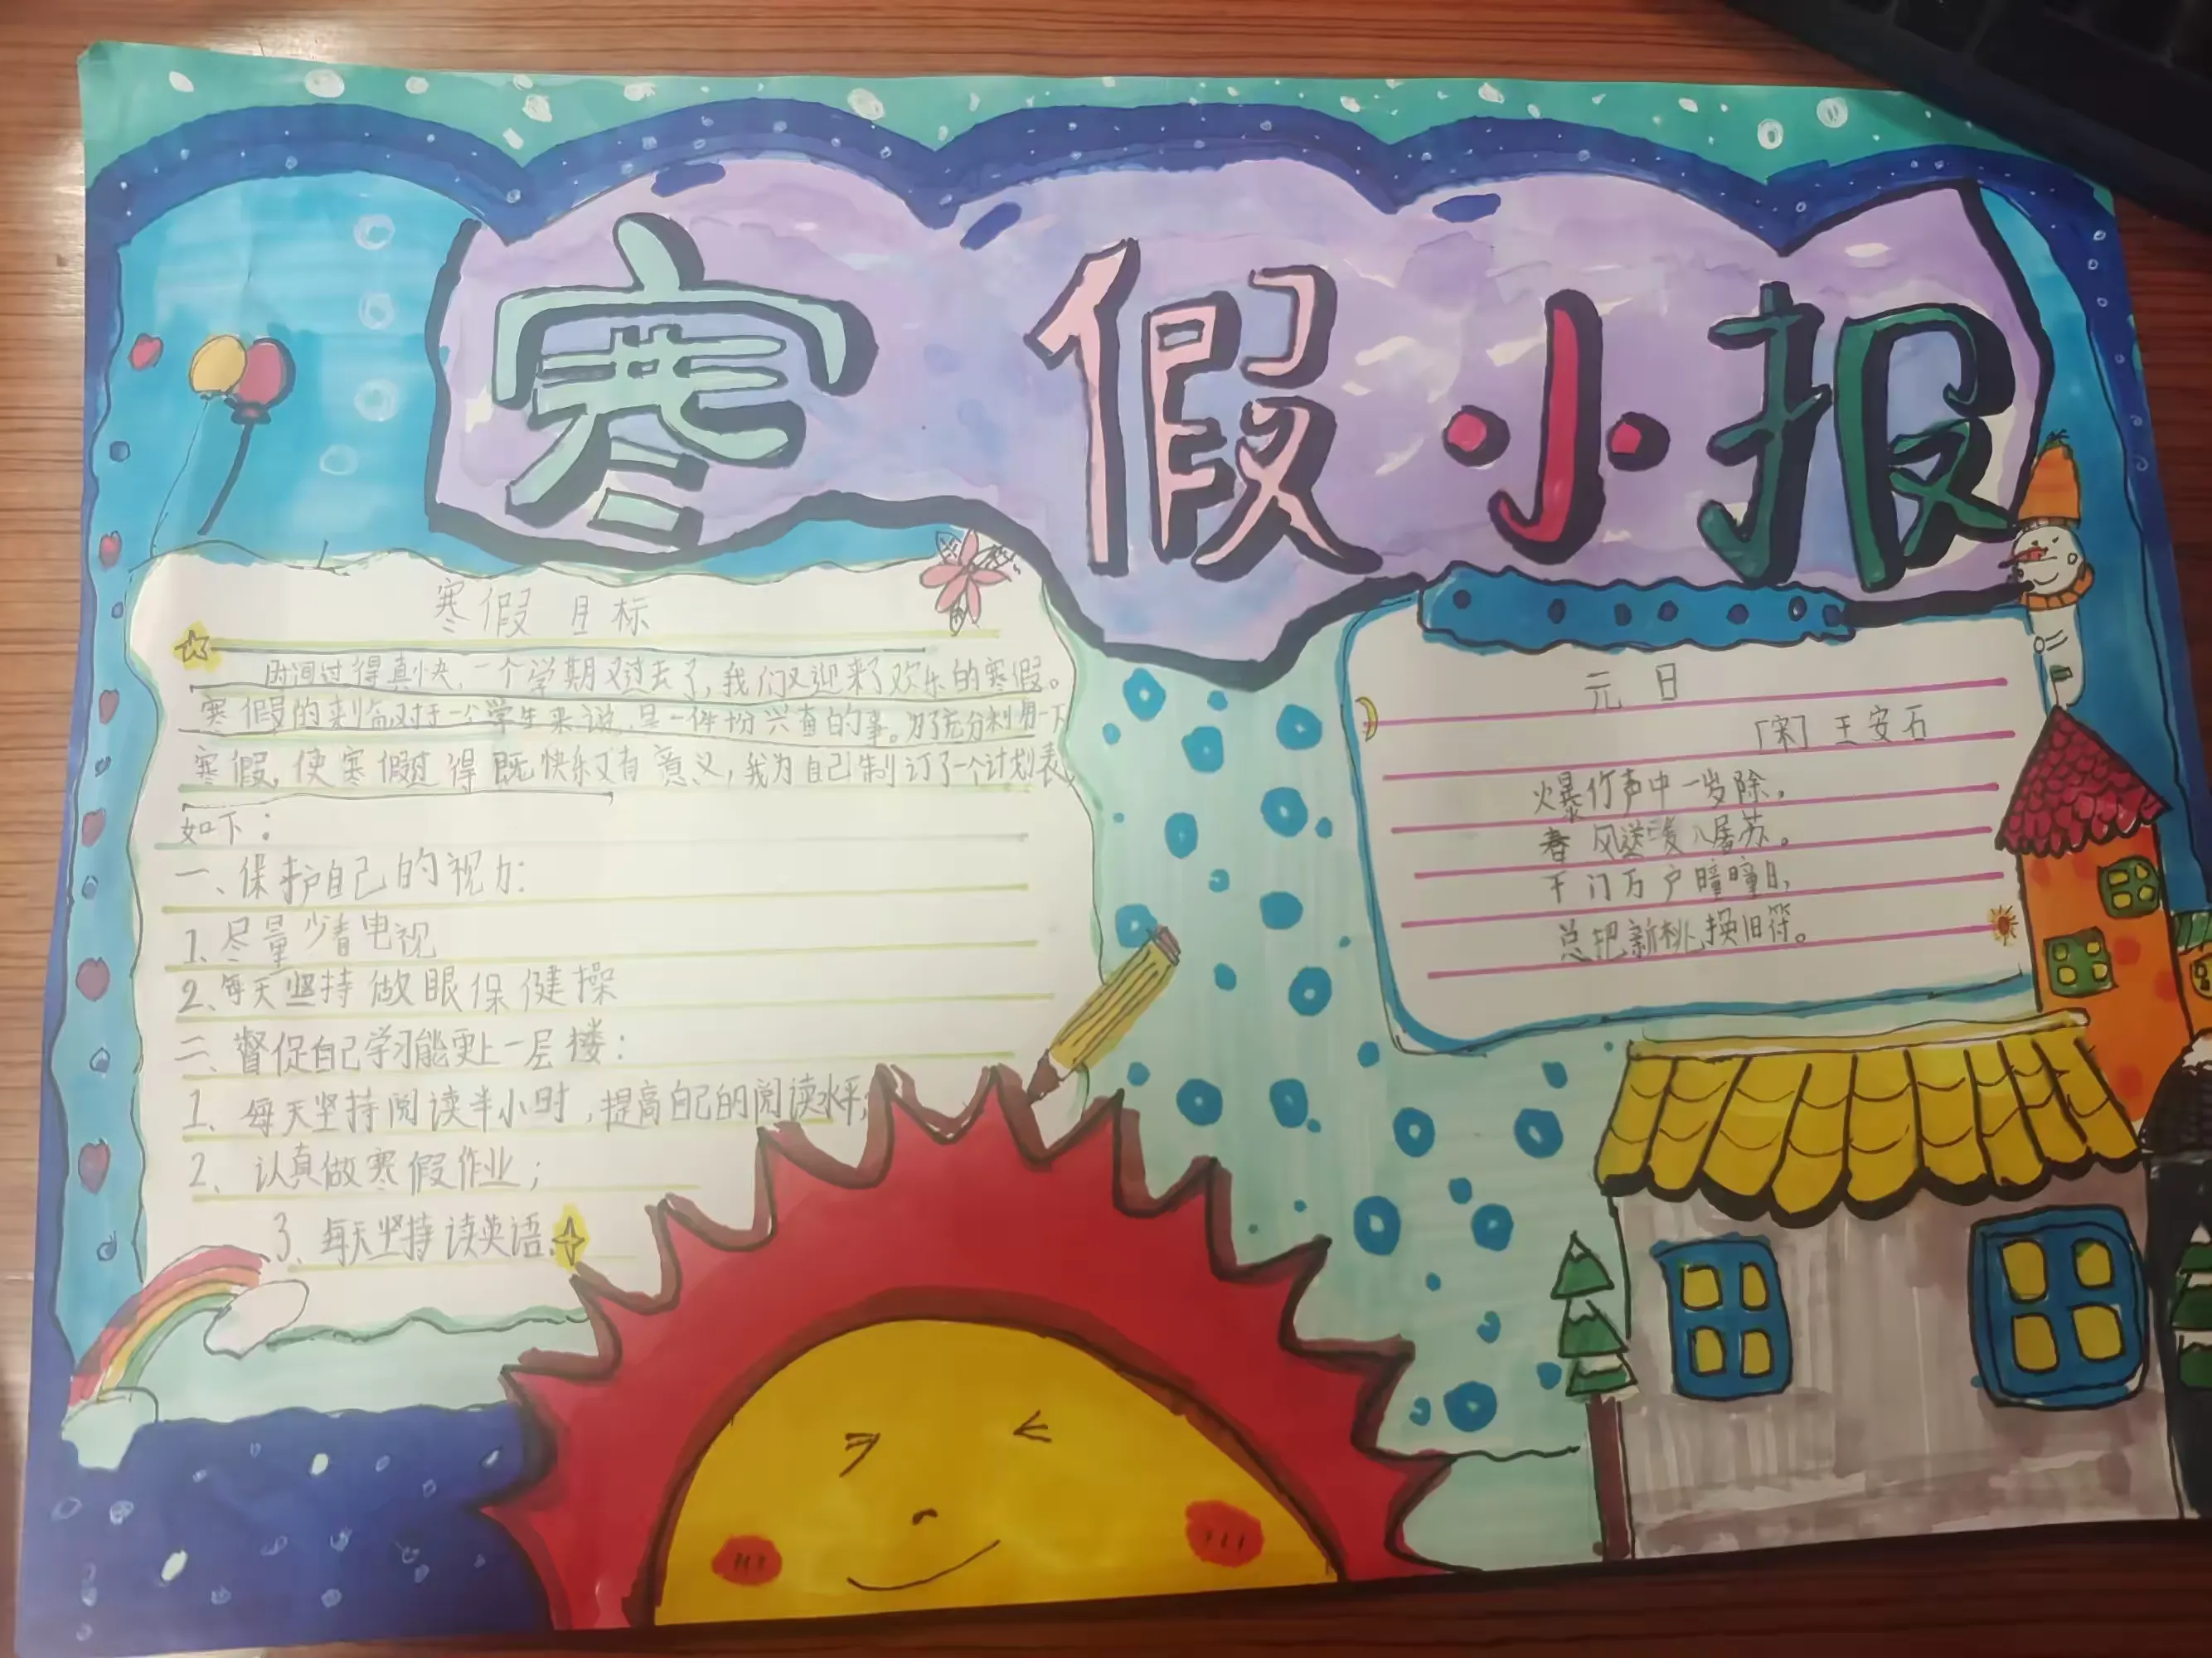 寒假小报
寒假目标
时间过得真快,一个学期又过去了,我们又迎来了欢乐的寒假。
寒假的来临对于一个学生来说,是一件扮兴直的事。为了充分利用一下
寒假,使寒假过得既快乐又有意义,我为自己制订了一个计划表,
如下:
一、保护自己的视力:
1、尽量少看电视
2、每天坚持做眼保健操
二、督促自己学习能更上一层楼:
1、每天坚持阅读半小时,提高自己的阅读水平;
2、认真做寒假作业;
3、每天坚持读英语.
元日
「宋」王安石
爆竹声中一岁除,
春风送暖入屠苏。
千门万户曈曈日,
总把新桃换旧符。